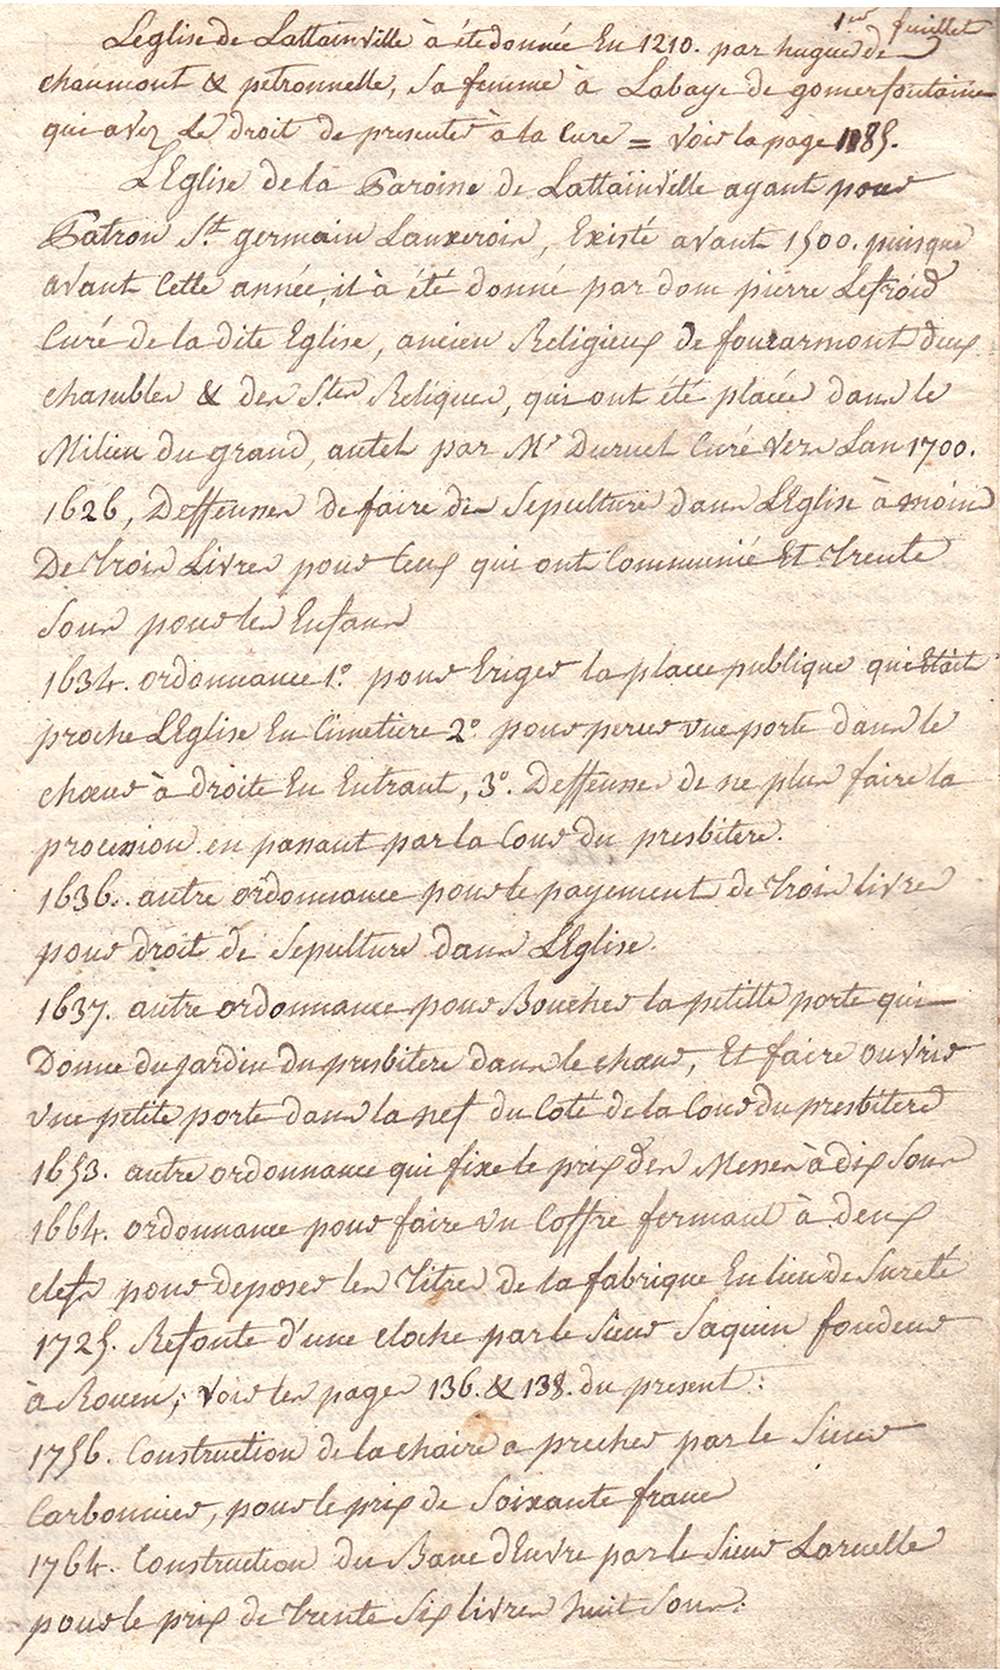 1er feuillet
Leglise de Lattainville à éte donnée En 1210. par hugue de
chaumont & petronnelle, sa femme à Labaye de gomerfontaine
qui avez Le droit de presenter à la Cure = Voir la page 185.
LEglise de la Paroisse de Lattainville ayant pour
Patron St. germain Lauxerois, Existé avant 1500. puisque
avant Cette année, il à été donné par dom pierre Lefroid
Curé de la dite Eglise, ancien Religieux de foucarmont deux
chasubles & des Stes Reliques, qui ont été placée dans le
Milieu du grand, autel par Mr Duruel Curé Vers Lan 1700.
1626, Deffenses de faire des Sepulture dans LEglise à moins
De trois Livres pour Ceux qui ont Communié Et trente
Sous pour les Enfans
1634. ordonnance 1o. pour Eriger la place publique qui Etait
proche LEglise En Cimetiere 2o pour percer une porte dans le
chœur à droite En Entrant, 3o. Deffenses de ne plus faire la
procession en passant par la Cour du presbitere.
1636. autre ordonnance pour le payement de trois livres
pour droit de Sepulture dans LEglise.
1637. autre ordonnance pour Boucher la petitte porte qui
Donne du jardin du presbitere dans le chœur, Et faire ouvrir
une petite porte dans la nef du Coté de la Cour du presbitere
1653. autre ordonnance qui fixe le prix des Messes à dix Sous
1664. ordonnance pour faire un Coffre fermant à deux
clefs pour deposer les Titres de la fabrique En lieu de Sureté
1725. Refonte d'une cloche par le Sieur Jaquin fondeur
à Rouen; Voir les pages 136. & 138. du present:
1756. Construction de la chaire a precher par le Sieur
Carbonnier, pour le prix de Soixante franc
1764. Construction du Banc dEuvre par le Sieur Laruelle
pour le prix de trente Six livres huit Sous.